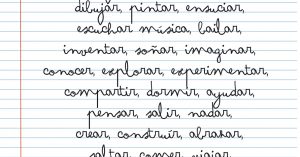 dibujar, pintar, ensuciar,
escuchar música, bailar,
inventar, soñar, imaginar,
conocer, explorar, experimentar,
compartir, dormir, ayudar,
pensar, salir, nadar,
crear, construir, abrazar,
saltar, comer, viajar,